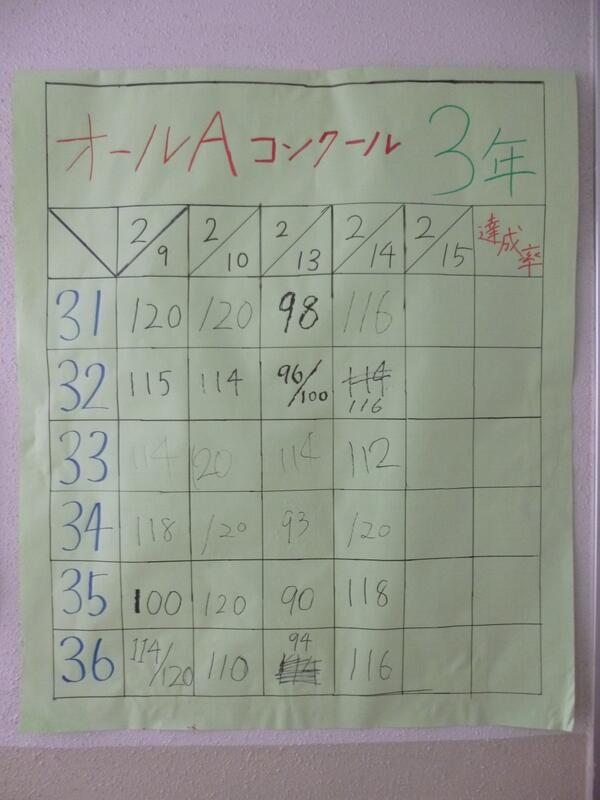 オールAコンクール 3年
2/9 2/10 2/13 2/14 2/15 達成率
31 120 120 98 116
32 115 114 96/100 114 116
33 114 120 114 112
34 118 120 93 120
35 100 120 90 118
36 114/120 110 94 116